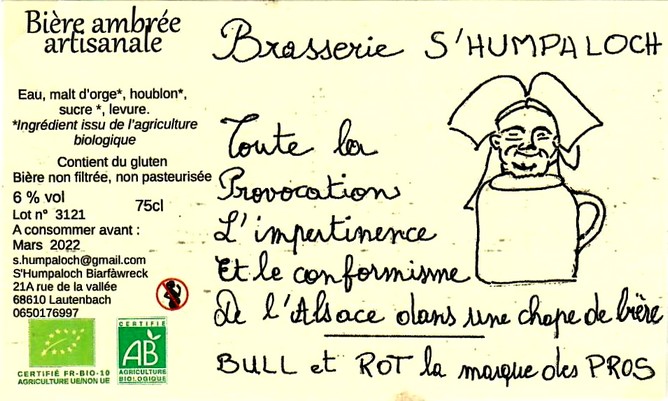 Bière ambrée
artisanale
Eau, malt d'orge*, houblon*,
sucre *, levure.
*Ingrédient issu de l'agriculture
biologique
Contient du gluten
Bière non filtrée, non pasteurisée
6 % vol
75cl
Lot n° 3121
A consommer avant :
Mars 2022
s.humpaloch@gmail.com
S'Humpaloch Biarfàwreck
21A rue de la vallée
68610 Lautenbach
0650176997
CERTIFIÉ
AB
AGRICULTURE
BIOLOGIQUE
CERTIFIÉ FR-BIO-10
AGRICULTURE UE/NON UE
Brasserie S'HUMPALOCH
Toute la
Provocation
L'impertinence
Et le conformisme
De l'Alsace dans une chope de bière
BULL et ROT la marque des PROS